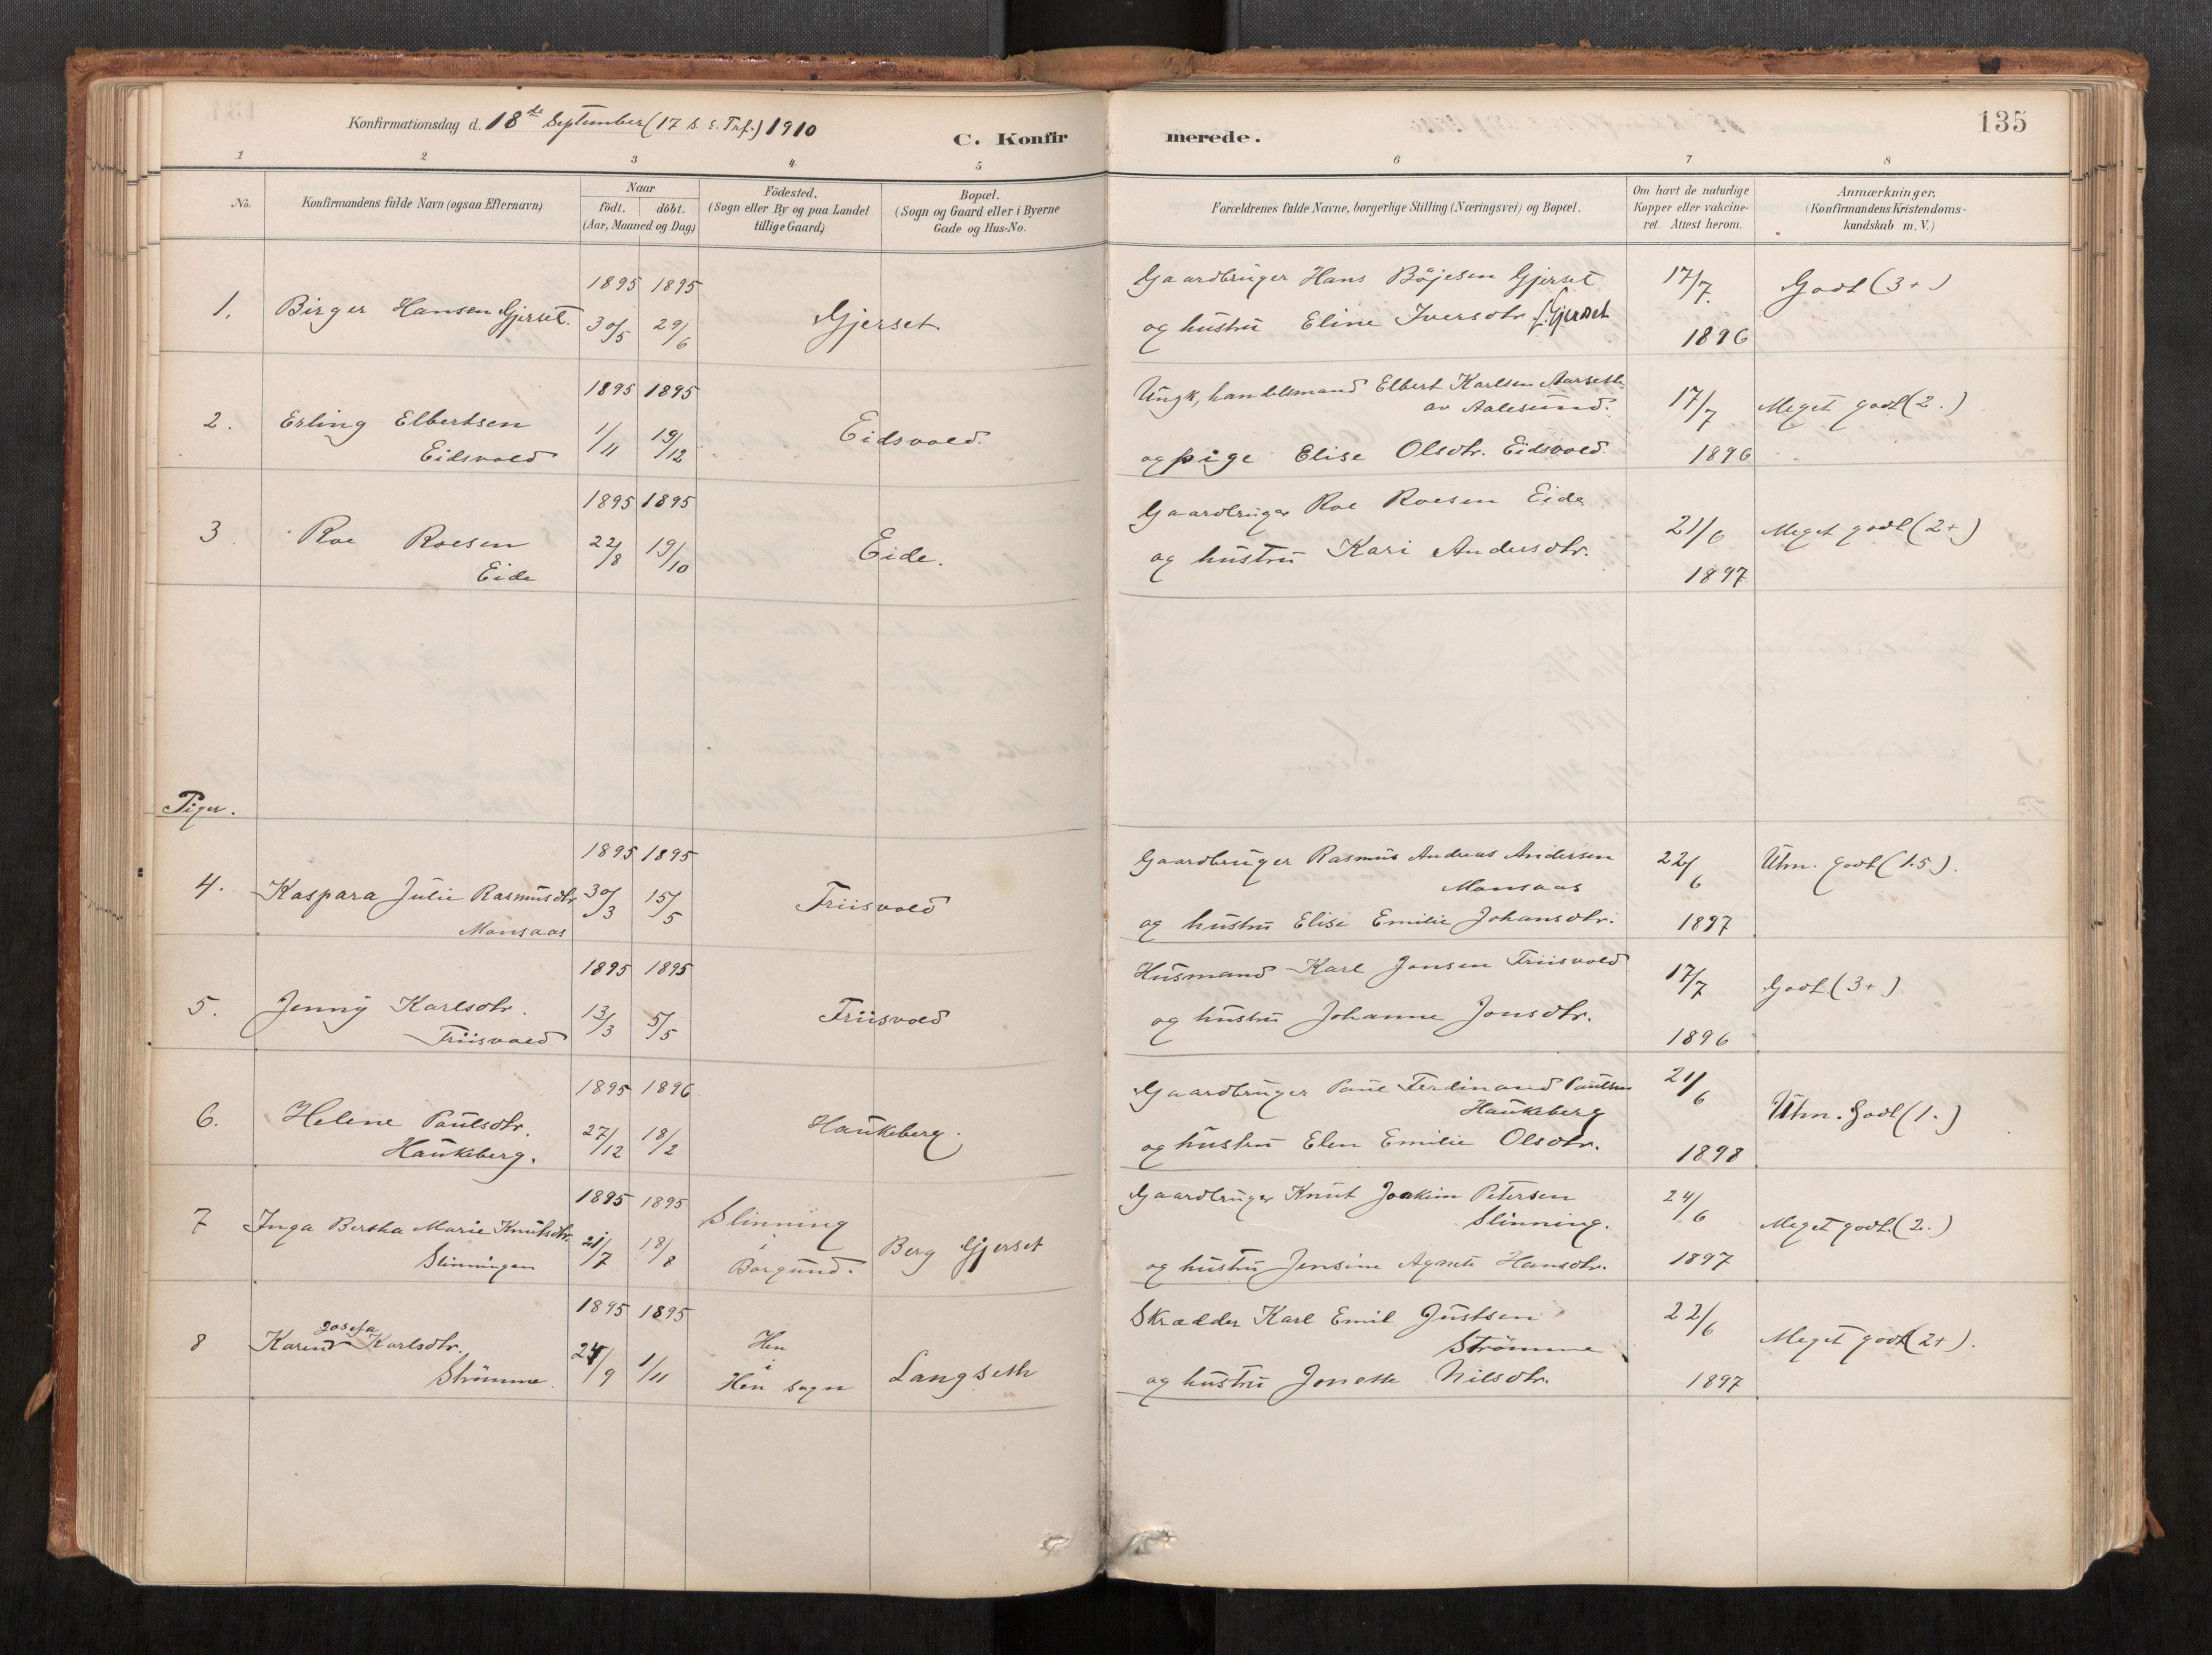 Konfirmationsdag d. 18de September (17 s. e. Tref.) 1910
C. Konfirmerede.
135
1 2 3 4 5 6 7 8
No.
Konfirmandens fulde Navn (ogsaa Efternavn)
Naar
födt. döbt.
(Aar, Maaned og Dag)
Födested.
(Sogn eller By og paa Landet
tillige Gaard)
Bopæl.
(Sogn og Gaard eller i Byerne
Gade og Hus-No.
Forældrenes fulde Navne, borgerlige Stilling (Næringsvei) og Bopæl.
Om havt de naturlige
Kopper eller vakcine-
ret. Attest herom.
Anmærkninger,
(Konfirmandens Kristendoms-
kundskab m. V.)
1895 1895
1. Birger Hansen Gjerset. 30/5 29/6 Gjerset.
Gaardbruger Hans Böjesen Gjerset
og hustru Eline Iversdtr. f. Gjerset
17/7 1896
Godt (3+)
1895 1895
2. Erling Elbertsen
Eidsvold
1/11 19/12 Eidsvold.
Ungk, handelsmand Elbert Karlsen Aarseth
av Aalesund.
og pige Elise Olsdtr. Eidsvold.
17/7 1896
Meget godt (2.)
1895 1895
3 Roe Roesen
Eide
22/8 19/10 Eide.
Gaardbruger Roe Roesen Eide
og hustru Kari Andersdtr.
21/6 1897
Meget godt (2+)
Piger.
1895 1895
4. Kaspara Julie Rasmusdtr
Monsaas
30/3 15/5 Friisvold
Gaardbruger Rasmus Andreas Andersen
Monsaas
og hustru Elise Emilie Johansdtr.
22/6 1897
Utm. godt (1.5).
1895 1895
5. Jenny Karlsdtr.
Friisvold
13/3 5/5 Friisvold
Husmand Karl Jonsen Friisvold
og hustru Johanne Jonsdtr.
17/7 1896
Godt (3+)
1895 1896
6. Helene Paulsdtr.
Haukeberg.
27/12 18/2 Haukeberg.
Gaardbruger Paul Ferdinand Paulsen
Haukeberg
og hustru Elen Emilie Olsdtr.
21/6 1898
Utm. Godt (1.)
1895 1895
7 Inga Bertha Marie Knutsdtr.
Slinningen
21/7 18/8
Slinning
i
Borgund.
Berg Gjerset
Gaardbruger Knut Joakim Petersen
Slinning.
og hustru Jensine Agnete Hansdtr.
24/6 1897
Meget godt. (2.)
1895 1895
8 Karen Josefa Karlsdtr.
Strömme.
24/9 1/11
Hen
i
Hen sogn
Langseth
Skrædder Karl Emil Justsen
Strömme
og hustru Jonette Nilsdtr.
22/6 1897
Meget godt (2+).